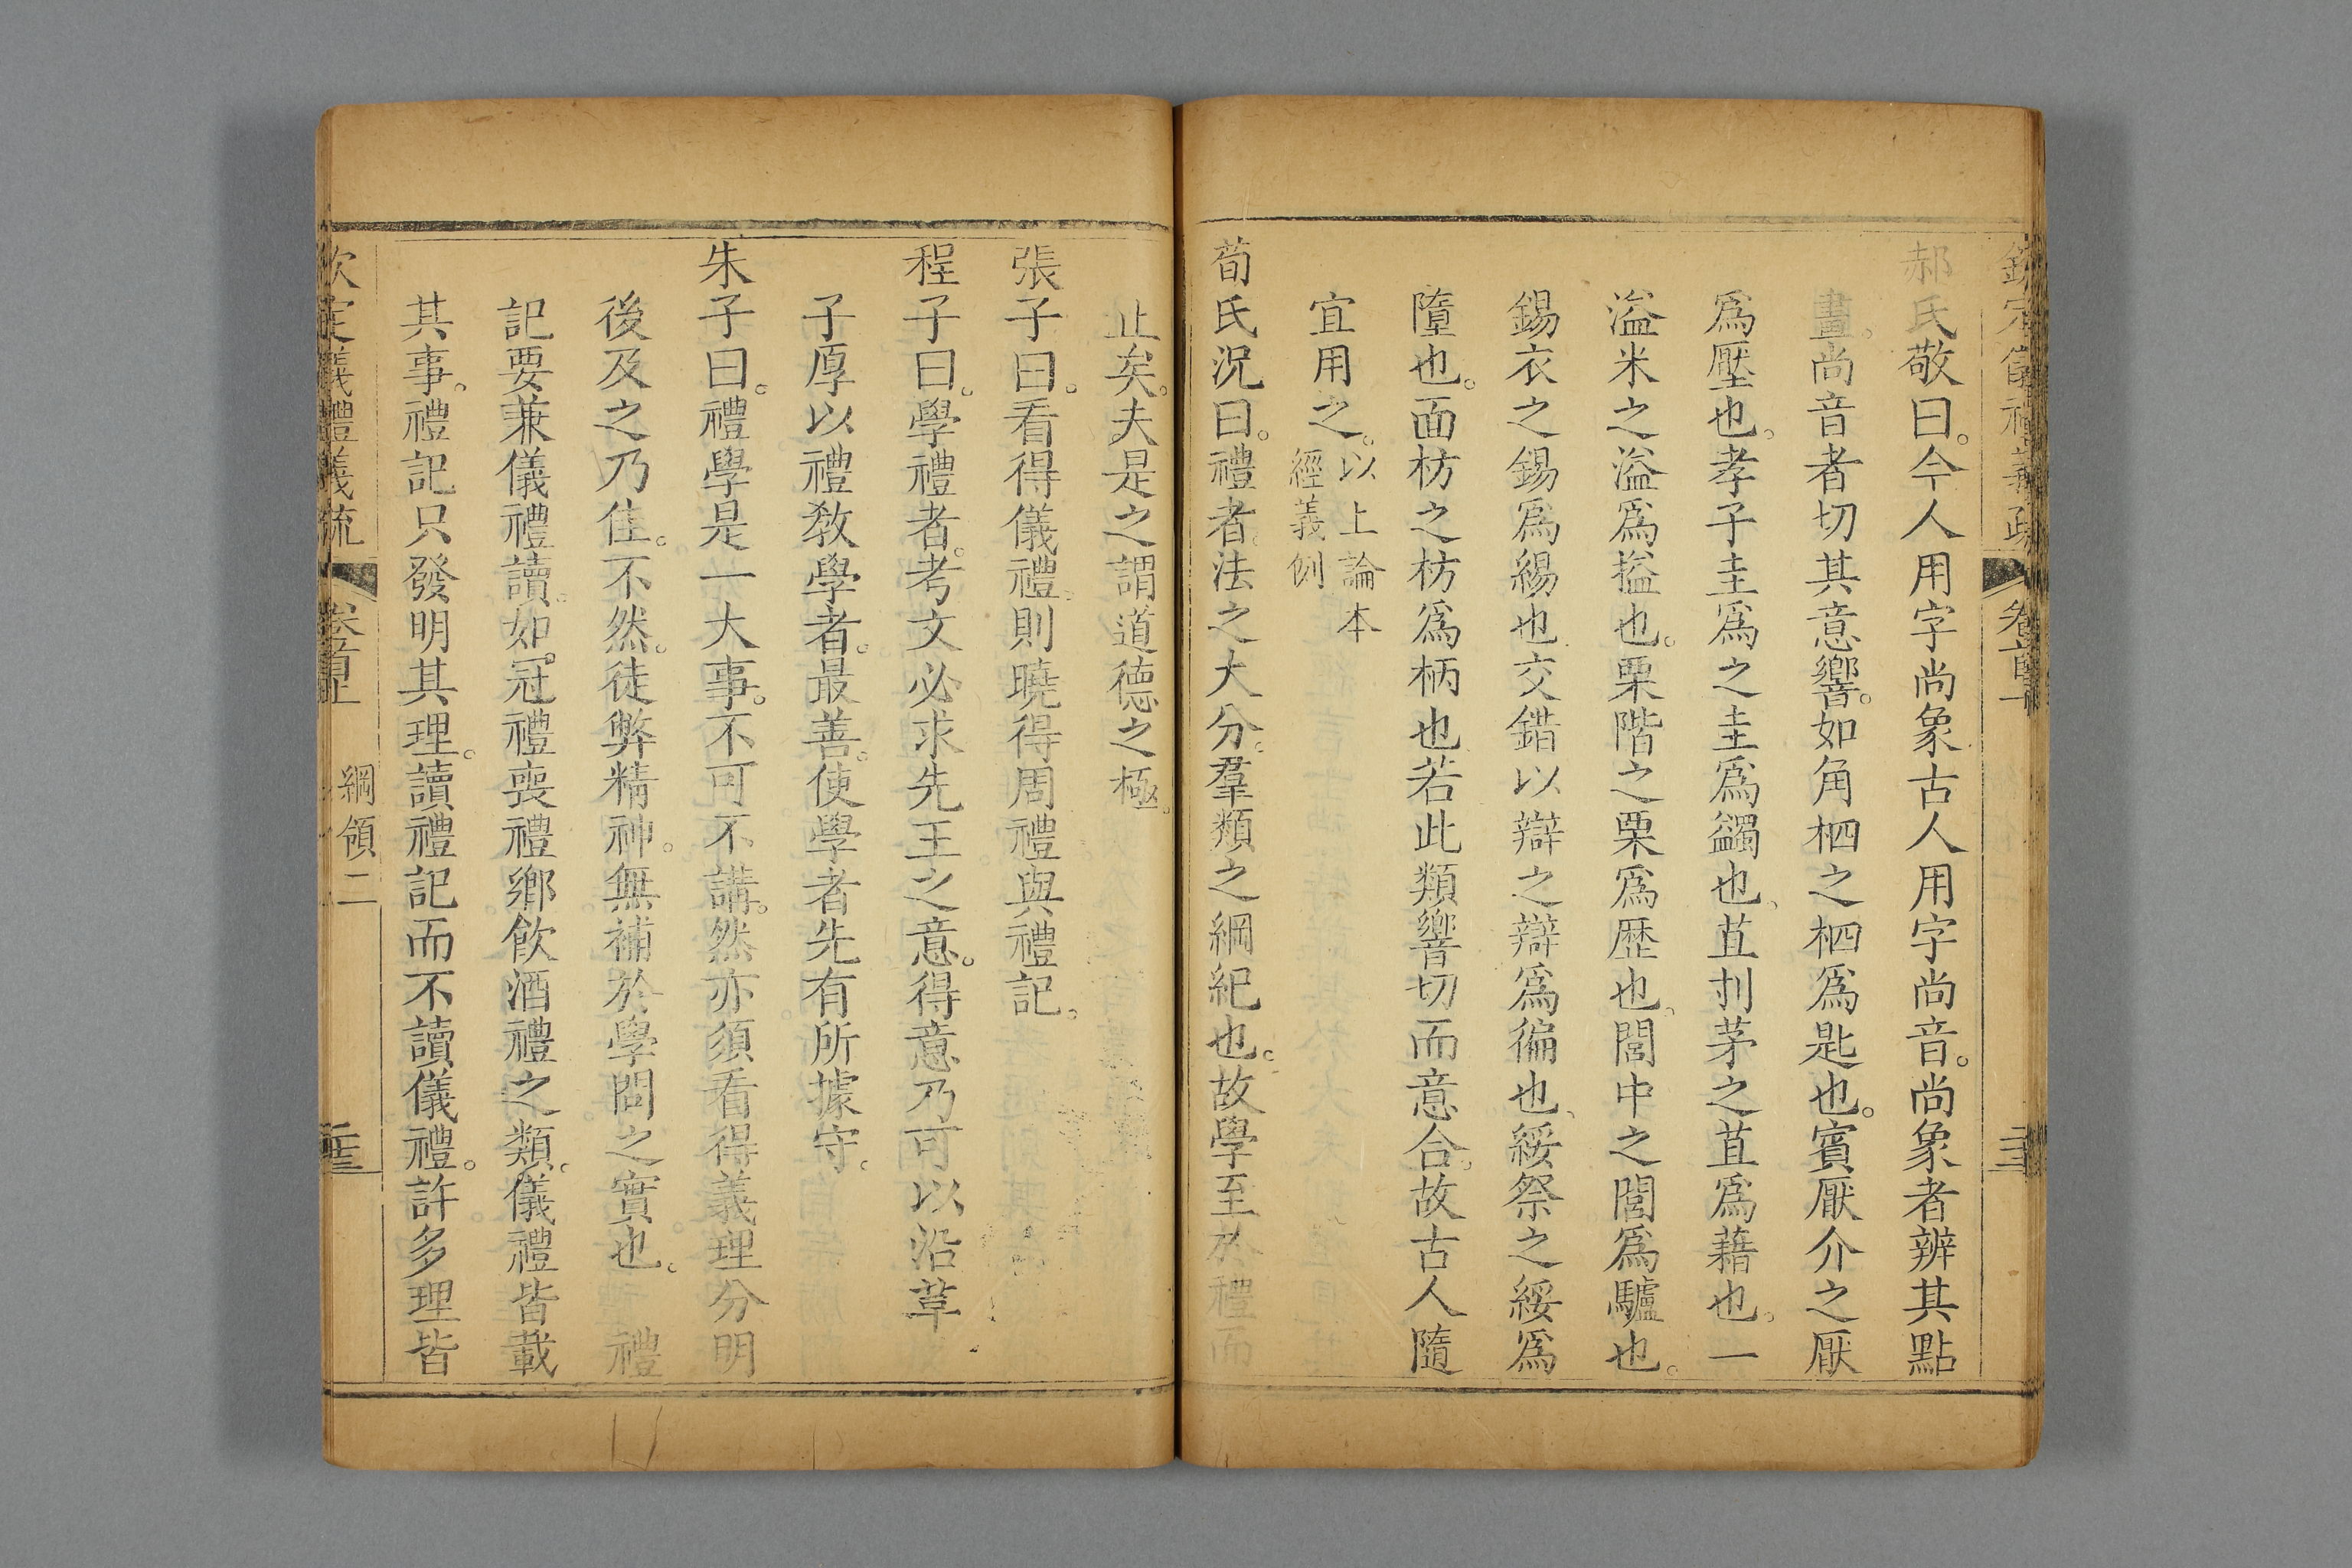 欽定儀禮義疏 卷首上
郝氏敬曰。今人用字尚象古人用字尚音。尚象者辨其點
畫。尚音者切其意響。如角柶之柶爲匙也。賓厭介之厭
爲壓也。孝子圭爲之圭爲蠲也、苴刌茅之苴爲藉也。一
溢米之溢爲搤也。栗階之栗爲歴也、閭中之閭爲驢也。
錫衣之錫爲緆也交錯以辯之辯爲徧也、綏祭之綏爲
隳也。面枋之枋爲柄也若此類響切而意合。故古人隨
宜用之。以上論本
經義例
荀氏況曰。禮者。法之大分。羣類之綱紀也。故學至於禮而
止矣。夫是之謂道德之極。
張子曰。看得儀禮。則曉得周禮與禮記。
程子曰。學禮者。考文必求先王之意。得意乃可以沿革
子厚以禮教學者。最善。使學者先有所據守。
朱子曰。禮學是一大事。不可不講。然亦須看得義理分明
後及之乃佳。不然。徒弊精神。無補於學問之實也。 禮
記要兼儀禮讀。如冠禮喪禮鄉飲酒禮之類。儀禮皆載
其事。禮記只發明其理。讀禮記而不讀儀禮。許多理皆
欽定儀禮義疏 卷首上 綱領二